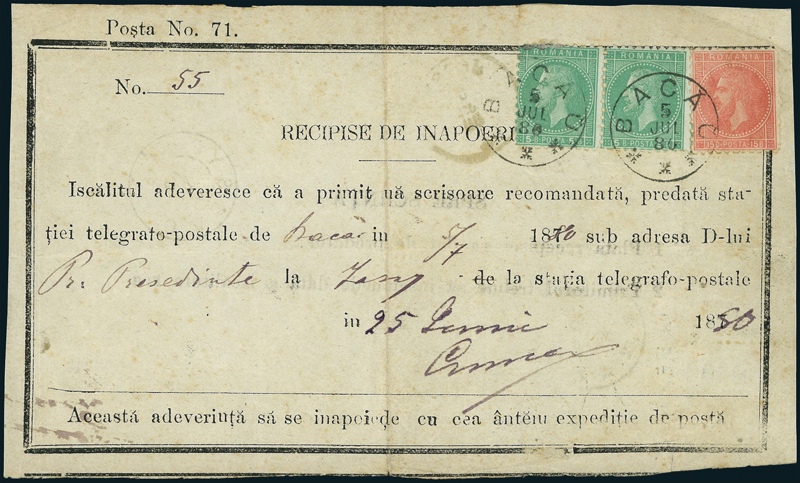 Poșta No. 71.
ROMANIA ROMANIA ROMANIA
No. 55
BACĂU 5 JUL 80
BACĂU 5 JUL 80
RECIPISE DE INAPOERI
Iscălitul adeveresce că a primit uă scrisoare recomandată, predată sta-
ției telegrafo-postale de Bacău in 5/7 1880 sub adresa D-lui
Pr. Presedinte la Iassy de la stația telegrafo-postale
in 25 Iunie 1880
Această adeverință să se inapoieḑe cu cea ântĕiu expediție de poștă